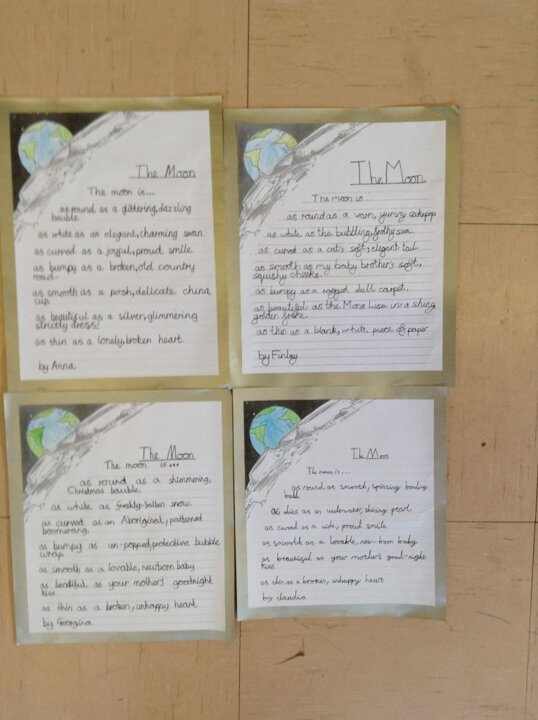 The Moon
The moon is....
as round as a glittering, dazzling
bauble
as white as an elegant, charming swan
as curved as a joyful, proud smile
as bumpy as a broken, old country
road.
as smooth as a posh, delicate china
cup
as beautiful as a silver, glimmering
strictly dress!
as thin as a lonely, broken heart
by Anna
The Moon
The moon is...
as round as a warm, yummy cakepop
as white as the bubbling, frothy sea.
as curved as a cat's soft, elegant tail
as smooth as my baby brother's soft,
squishy cheeks.
as bumpy as a ragged dull carpet.
as beautiful as the Mona Lisa in a shiny
golden frame.
as thin as a blank, white piece of paper
by Finley
The Moon
The moon is...
as round as a shimmering,
Christmas bauble.
as white as freshly-fallen snow.
as curved as an Aboriginal, patterned
boomerang.
as bumpy as un-popped, protective bubble
wrap
as smooth as a lovable, newborn baby
as beatiful as your mother's goodnight
kiss
as thin as a broken, unhappy heart
by Georgina
The Moon
The moon is...
as round as smooth, spinning bowling
ball
as white as an underwater, shining pearl
as curved as a wide, proud smile
as smooth as a lovable, new-born baby
as beautiful as your mother's good-night
kiss
as thin as a broken, unhappy heart
by Claudia